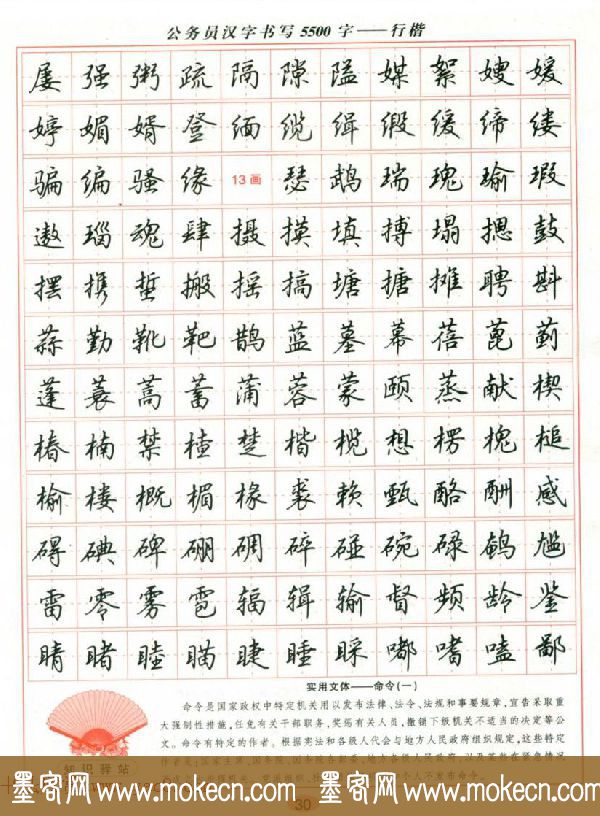 公务员汉字书写5500字——行楷
屡 强 粥 疏 隔 隙 隘 媒 絮 嫂 媛
婷 媚 婿 登 缅 缆 缉 缎 缓 缔 缕
骗 编 骚 缘 13画 瑟 鹉 瑞 瑰 瑜 瑕
遨 瑙 魂 肆 摄 摸 填 搏 塌 摁 鼓
摆 携 蜇 搬 摇 搞 塘 搪 摊 聘 斟
蒜 勤 靴 靶 鹊 蓝 墓 幕 蓓 蓖 蓟
蓬 蓑 蒿 蓄 蒲 蓉 蒙 颐 蒸 献 楔
椿 楠 禁 楂 楚 楷 榄 想 楞 槐 槌
榆 楼 概 楣 椽 裘 赖 甄 酪 酬 感
碍 碘 碑 硼 碉 碎 碰 碗 碌 鹌 尴
雷 零 雾 雹 辐 辑 输 督 频 龄 鉴
睛 睹 睦 瞄 睫 睡 睬 嘟 嗜 嗑 鄙
实用文体——命令(一)
命令是国家政权中特定机关用以发布法律、法令、法规和事要规章,宣告采取重
大强制性措施,任免有关干部职务,奖惩有关人员,撤销下级机关不适当的决定等公
文。命令有特定的作者。根据宪法和各级人代会与地方人民政府组织规定,这些特定
知识驿站
墨客网www.mokecn.com 墨客网www.mokecn.com
30